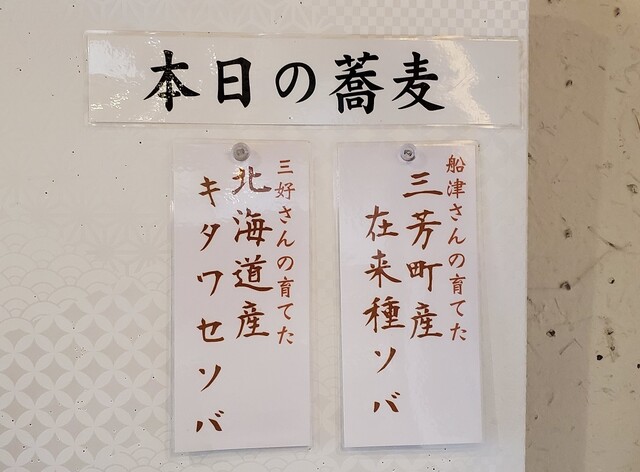 本日の蕎麦
船津さんの育てた
三芳町産
在来種ソバ
三好さんの育てた
北海道産
キタワセソバ